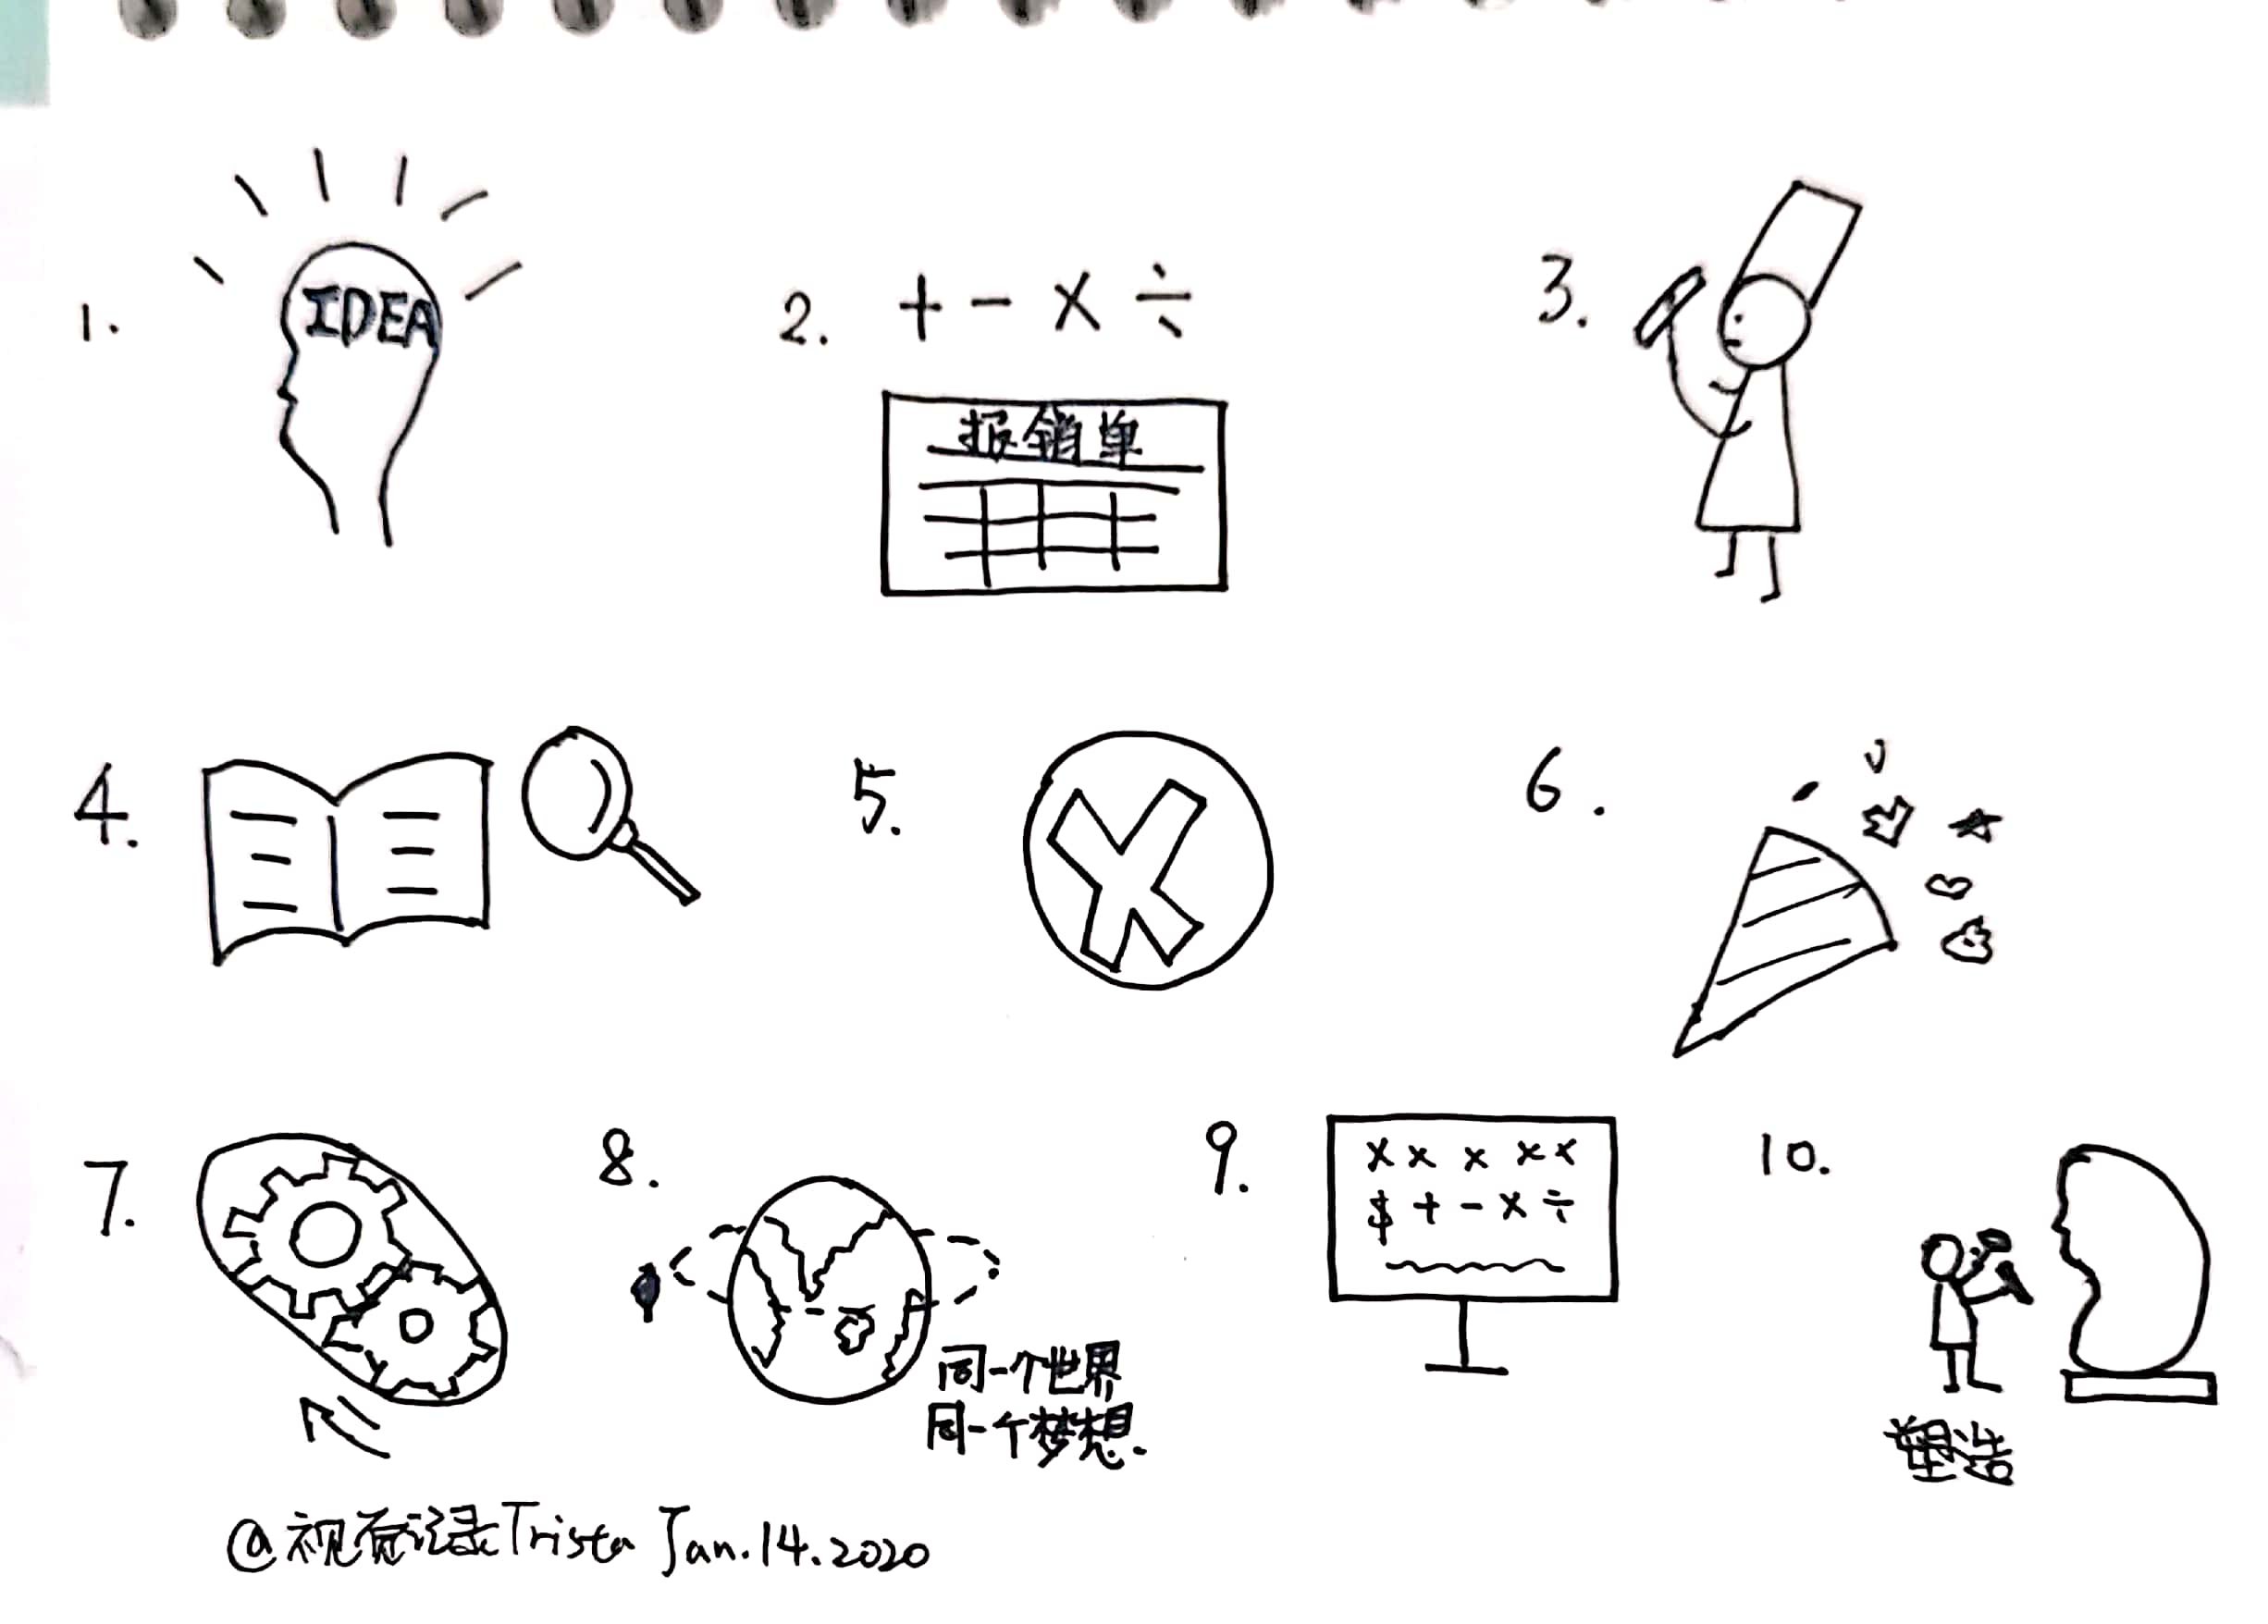 1.
IDEA
2. + - × ÷
报销单
3.
4.
5.
6.
7.
8.
同一个世界
同一个梦想.
9.
x x x x x
$ + - × ÷
10.
塑造
@视觉记录Trista Jan.14.2020